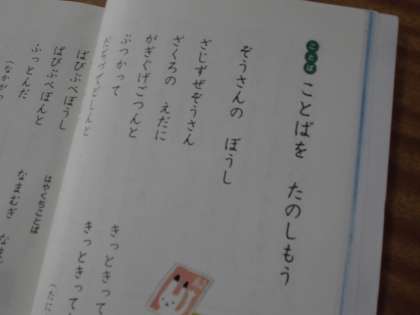 ことば
ことばを たのしもう
ぞうさんの ぼうし
ざじずぜぞうさん
ざくろの えだに
がぎぐげごつんと
ぶつかって
だぢづでどしんと
ばびぶべぼうし
ぱぴぷぺぽんと
ふっとんだ
きっときって
きっときって
はやくちことば
なまむぎ
なま